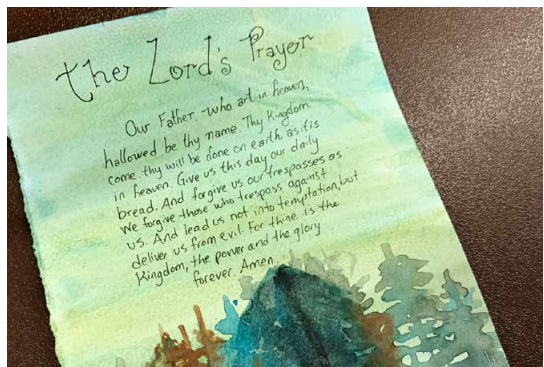 the Lord's Prayer
Our Father, who art in heaven,
hallowed be thy name. Thy Kingdom
come thy will be done on earth as it is
in heaven. Give us this day our daily
bread. And forgive us our trespasses as
we forgive those who trespass against
us. And lead us not into temptation, but
deliver us from evil. For thine is the
Kingdom, the power and the glory
forever. Amen.